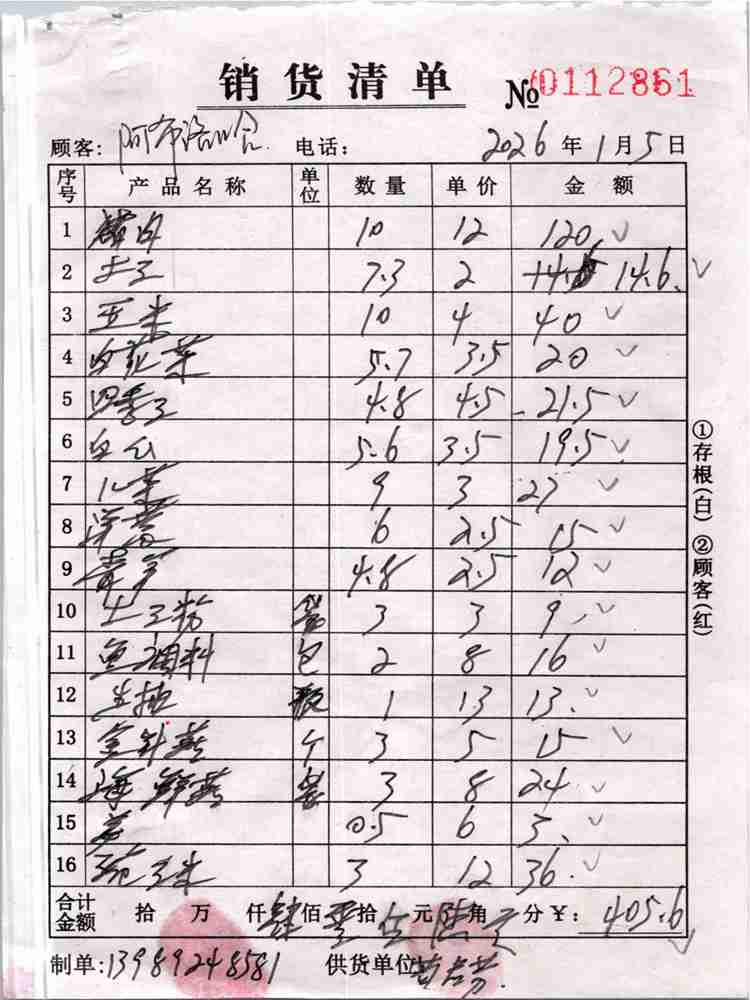 销货清单 № 0112861
顾客: 阿布洛哈 电话: 2026年1月5日
序号 产品名称 单位 数量 单价 金额
1 猪肉 10 12 120
2 土子 7.3 2 14.6
3 玉米 10 4 40
4 白花菜 5.7 3.5 20
5 四季豆 4.8 4.5 21.5
6 5.6 3.5 19.5
7 儿菜 9 3 27
8 6 2.5 15
9 青笋 4.8 2.5 12
10 土豆粉 袋 3 3 9
11 鱼调料 包 2 8 16
12 生抽 瓶 1 13 13
13 金针菇 个 3 5 15
14 海鲜菇 袋 3 8 24
15 0.5 6 3
16 3 12 36
合计金额 拾 万 仟 肆佰 零拾 伍元 陆角 分 ¥: 405.6
制单: 13989248581 供货单位
①存根(白) ②顾客(红)